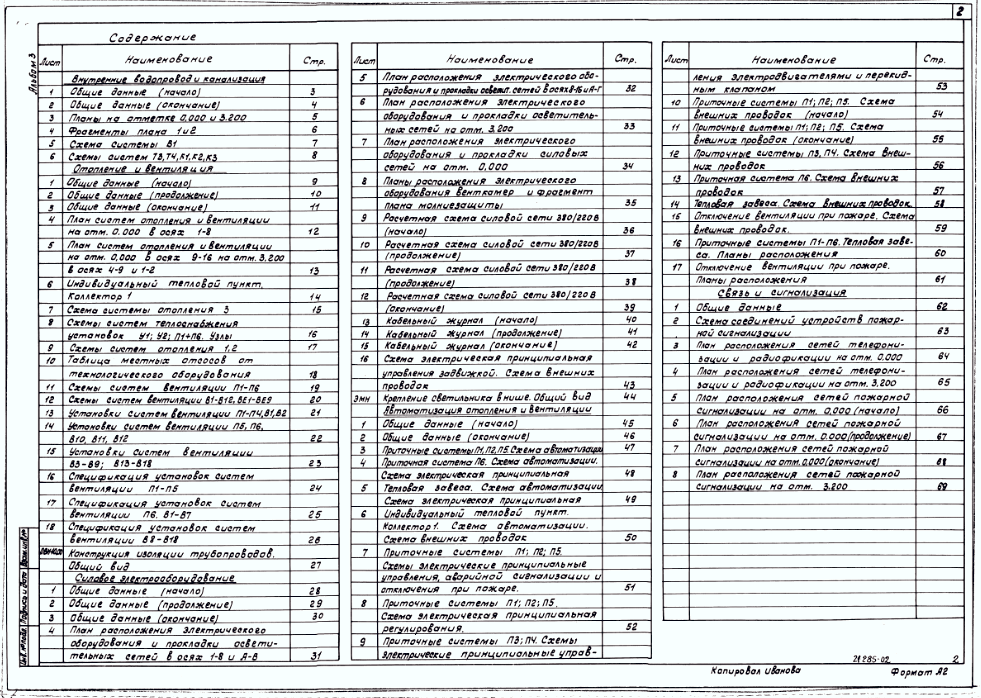 2
Альбом 3
Содержание
Лист Наименование Стр.
Внутренние водопровод и канализация
1 Общие данные (начало) 3
2 Общие данные (окончание) 4
3 Планы на отметке 0.000 и 3.200 5
4 Фрагменты плана 1 и 2 6
5 Схема системы В1 7
6 Схемы систем Т3,Т4,К1,К2,К3 8
Отопление и вентиляция
1 Общие данные (начало) 9
2 Общие данные (продолжение) 10
3 Общие данные (окончание) 11
4 План систем отопления и вентиляции
на отм. 0.000 в осях 1-8 12
5 План систем отопления и вентиляции
на отм. 0,000 в осях 9-16 на отм. 3.200
в осях 4-9 и 1-2 13
6 Индивидуальный тепловой пункт.
Коллектор 1 14
7 Схема системы отопления 3 15
8 Схемы систем теплоснабжения
установок У1; У2; П1÷П6. Узлы 16
9 Схемы систем отопления 1,2 17
10 Таблица местных отсосов от
технологического оборудования 18
11 Схемы систем вентиляции П1-П6 19
12 Схемы систем вентиляции В1-В12, ВЕ1-ВЕ9 20
13 Установки систем вентиляции П1-П4, В1, В2 21
14 Установки систем вентиляции П5, П6,
В10, В11, В12 22
15 Установки систем вентиляции
В3-В9; В13-В18 23
16 Спецификация установок систем
вентиляции П1-П5 24
17 Спецификация установок систем
вентиляции П6. В1-В7 25
18 Спецификация установок систем
вентиляции В8-В18 26
Конструкция изоляции трубопроводов.
Общий вид 27
Силовое электрооборудование
1 Общие данные (начало) 28
2 Общие данные (продолжение) 29
3 Общие данные (окончание) 30
4 План расположения электрического
оборудования и прокладки освети-
тельных сетей в осях 1-8 и А-В 31
Лист Наименование Стр.
5 План расположения электрического обо-
рудования и прокладки осветит. сетей в осях 8-16 и А-Г 32
6 План расположения электрического
оборудования и прокладки осветитель-
ных сетей на отм. 3.200 33
7 План расположения электрического
оборудования и прокладки силовых
сетей на отм. 0,000 34
8 Планы расположения электрического
оборудования венткамер и фрагмент
плана молниезащиты 35
9 Расчетная схема силовой сети 380/220В
(начало) 36
10 Расчетная схема силовой сети 380/220В
(продолжение) 37
11 Расчетная схема силовой сети 380/220В
(продолжение) 38
12 Расчетная схема силовой сети 380/220В
(окончание) 39
13 Кабельный журнал (начало) 40
14 Кабельный журнал (продолжение) 41
15 Кабельный журнал (окончание) 42
16 Схема электрическая принципиальная
управления задвижкой. Схема внешних
проводок 43
ЭМН Крепление светильника в нише. Общий вид 44
Автоматизация отопления и вентиляции
1 Общие данные (начало) 45
2 Общие данные (окончание) 46
3 Приточные системы П1, П2, П5. Схема автоматизации 47
4 Приточная система П6. Схема автоматизации.
Схема электрическая принципиальная 48
5 Тепловая завеса. Схема автоматизации
Схема электрическая принципиальная 49
6 Индивидуальный тепловой пункт.
Коллектор 1. Схема автоматизации.
Схема внешних проводок 50
7 Приточные системы П1; П2; П5.
Схемы электрические принципиальные
управления, аварийной сигнализации и
отключения при пожаре. 51
8 Приточные системы П1; П2; П5.
Схема электрическая принципиальная
регулирования. 52
9 Приточные системы П3; П4. Схемы
электрические принципиальные управ-
Лист Наименование Стр.
ления электродвигателями и перекид-
ным клапаном 53
10 Приточные системы П1; П2; П5. Схема
внешних проводок (начало) 54
11 Приточные системы П1; П2; П5. Схема
внешних проводок (окончание) 55
12 Приточные системы П3, П4. Схема внеш-
них проводок 56
13 Приточная система П6. Схема внешних
проводок 57
14 Тепловая завеса. Схема внешних проводок. 58
15 Отключение вентиляции при пожаре. Схема
внешних проводок. 59
16 Приточные системы П1-П6. Тепловая заве-
са. Планы расположения 60
17 Отключение вентиляции при пожаре.
Планы расположения 61
Связь и сигнализация
1 Общие данные 62
2 Схема соединений устройств пожар-
ной сигнализации 63
3 План расположения сетей телефони-
зации и радиофикации на отм. 0.000 64
4 План расположения сетей телефони-
зации и радиофикации на отм. 3.200 65
5 План расположения сетей пожарной
сигнализации на отм. 0,000 (начало) 66
6 План расположения сетей пожарной
сигнализации на отм. 0.000 (продолжение) 67
7 План расположения сетей пожарной
сигнализации на отм. 0.000 (окончание) 68
8 План расположения сетей пожарной
сигнализации на отм. 3.200 69
Инв. № подл. Подпись и дата Взам. инв. №
21285-02 2
Копировал Иванова Формат А2